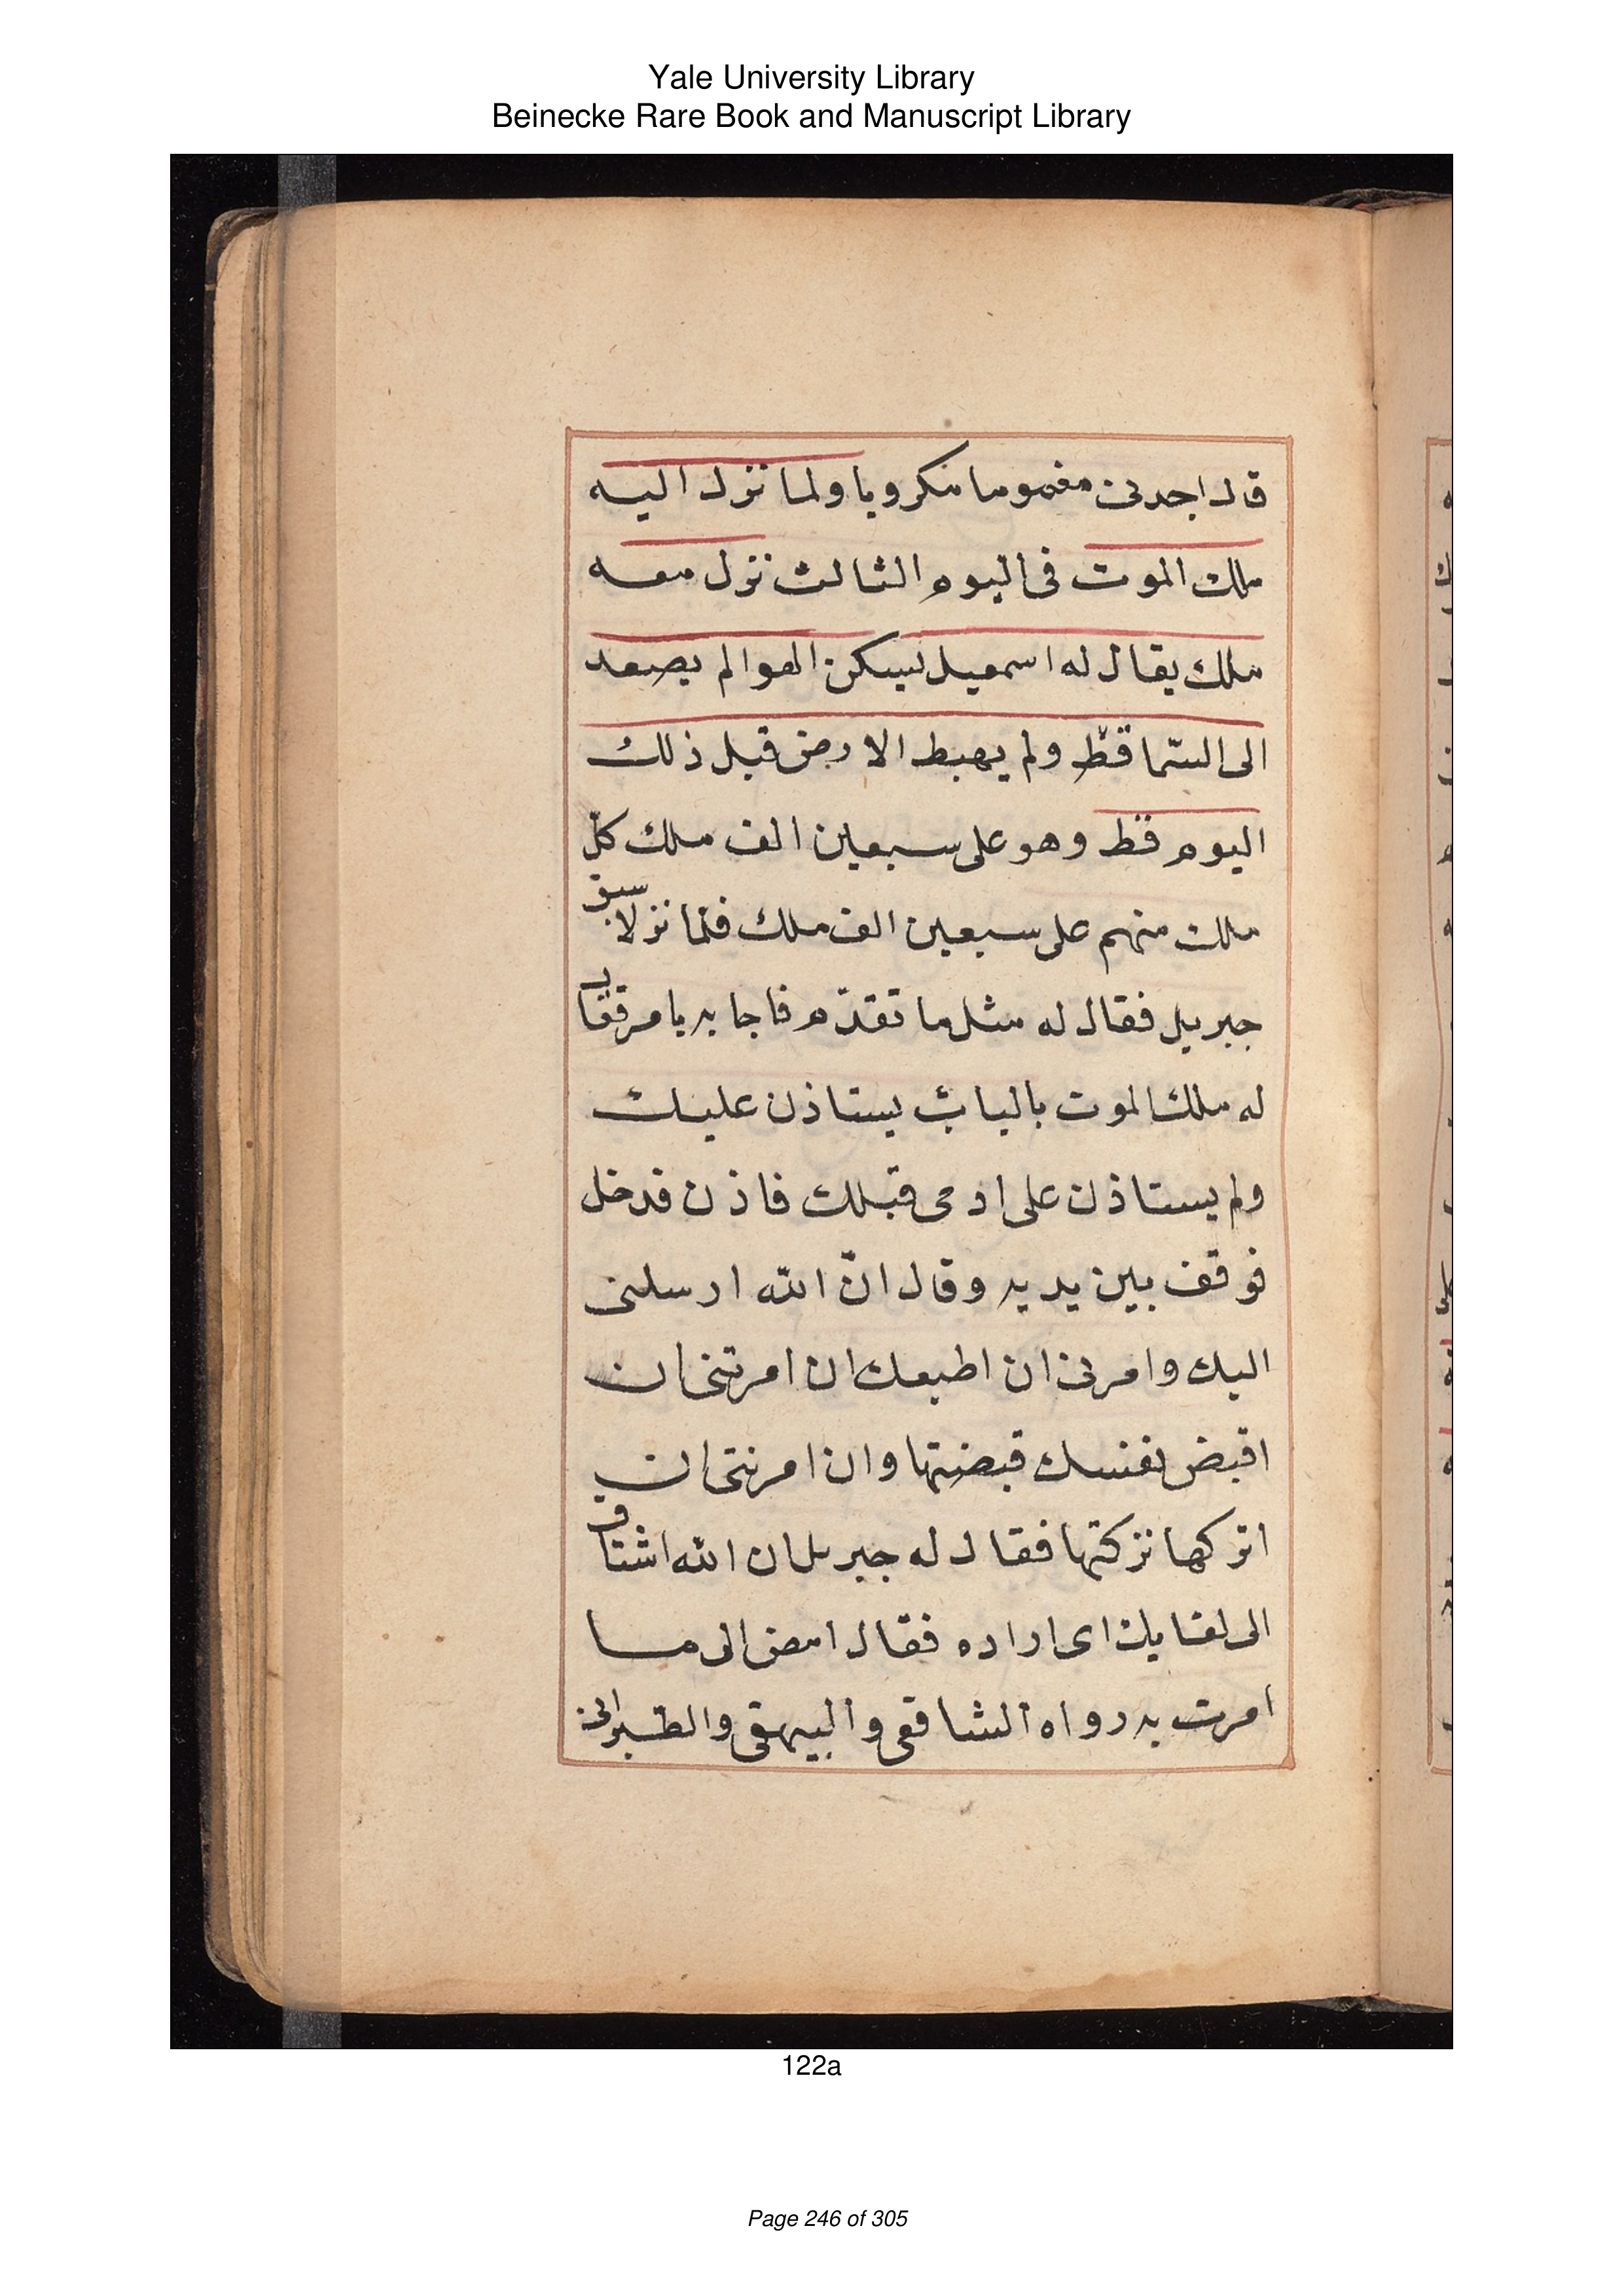 Yale University Library
Beinecke Rare Book and Manuscript Library
قال اجدنى مغموما مكروبا ولما نزل اليه
ملك الموت فى اليوم الثالث نزل معه
ملك يقال له اسمعيل يسكن الهوا لم يصعد
الى السّما قطّ ولم يهبط الارض قبل ذلك
اليوم قط وهو على سبعين الف ملك كلّ
ملك منهم على سبعين الف ملك فلمّا نزلا سبق
جبريل فقال له مثل ما تقدّم فاجابه بامر فقال
له ملك الموت بالباب يستاذن عليك
ولم يستاذن على ادمى قبلك فاذن فدخل
فوقف بين يديه وقال انّ الله ارسلنى
اليك وامرنى ان اطيعك ان امرتنى ان
اقبض نفسك قبضتها وان امرتنى ان
اتركها تركتها فقال له جبريل ان الله اشتاق
الى لقايك اى اراده فقال امض الى ما
امرت به رواه الشافعى والبيهقى والطّبرانى
122a
Page 246 of 305